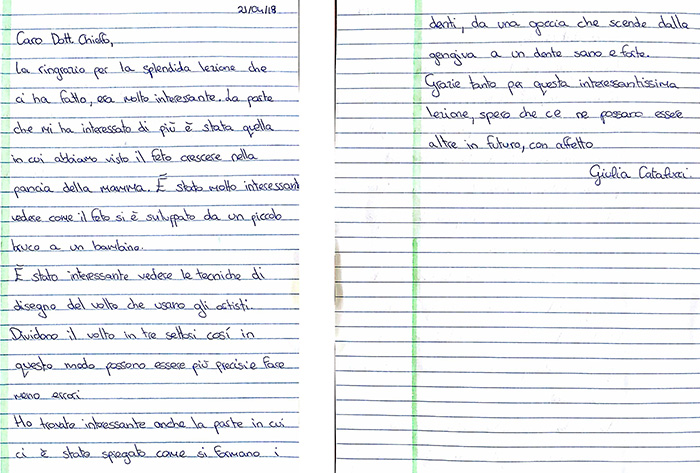 21/04/18
Caro Dott. Chieffo,
La ringrazio per la splendida lezione che
ci ha fatto, era molto interessante. La parte
che mi ha interessato di più è stata quella
in cui abbiamo visto il feto crescere nella
pancia della mamma. È stato molto interessant
vedere come il feto si è sviluppato da un piccolo
bruco a un bambino.
È stato interessante vedere le tecniche di
disegno del volto che usano gli artisti.
Dividono il volto in tre settori così in
questo modo possono essere più precisi e fare
meno errori
Ho trovato interessante anche la parte in cui
ci è stato spiegato come si formano i
denti, da una goccia che scende dalla
gengiva a un dente sano e forte.
Grazie tanto per questa interessantissima
lezione, spero che ce ne possano essere
altre in futuro, con affetto
Giulia